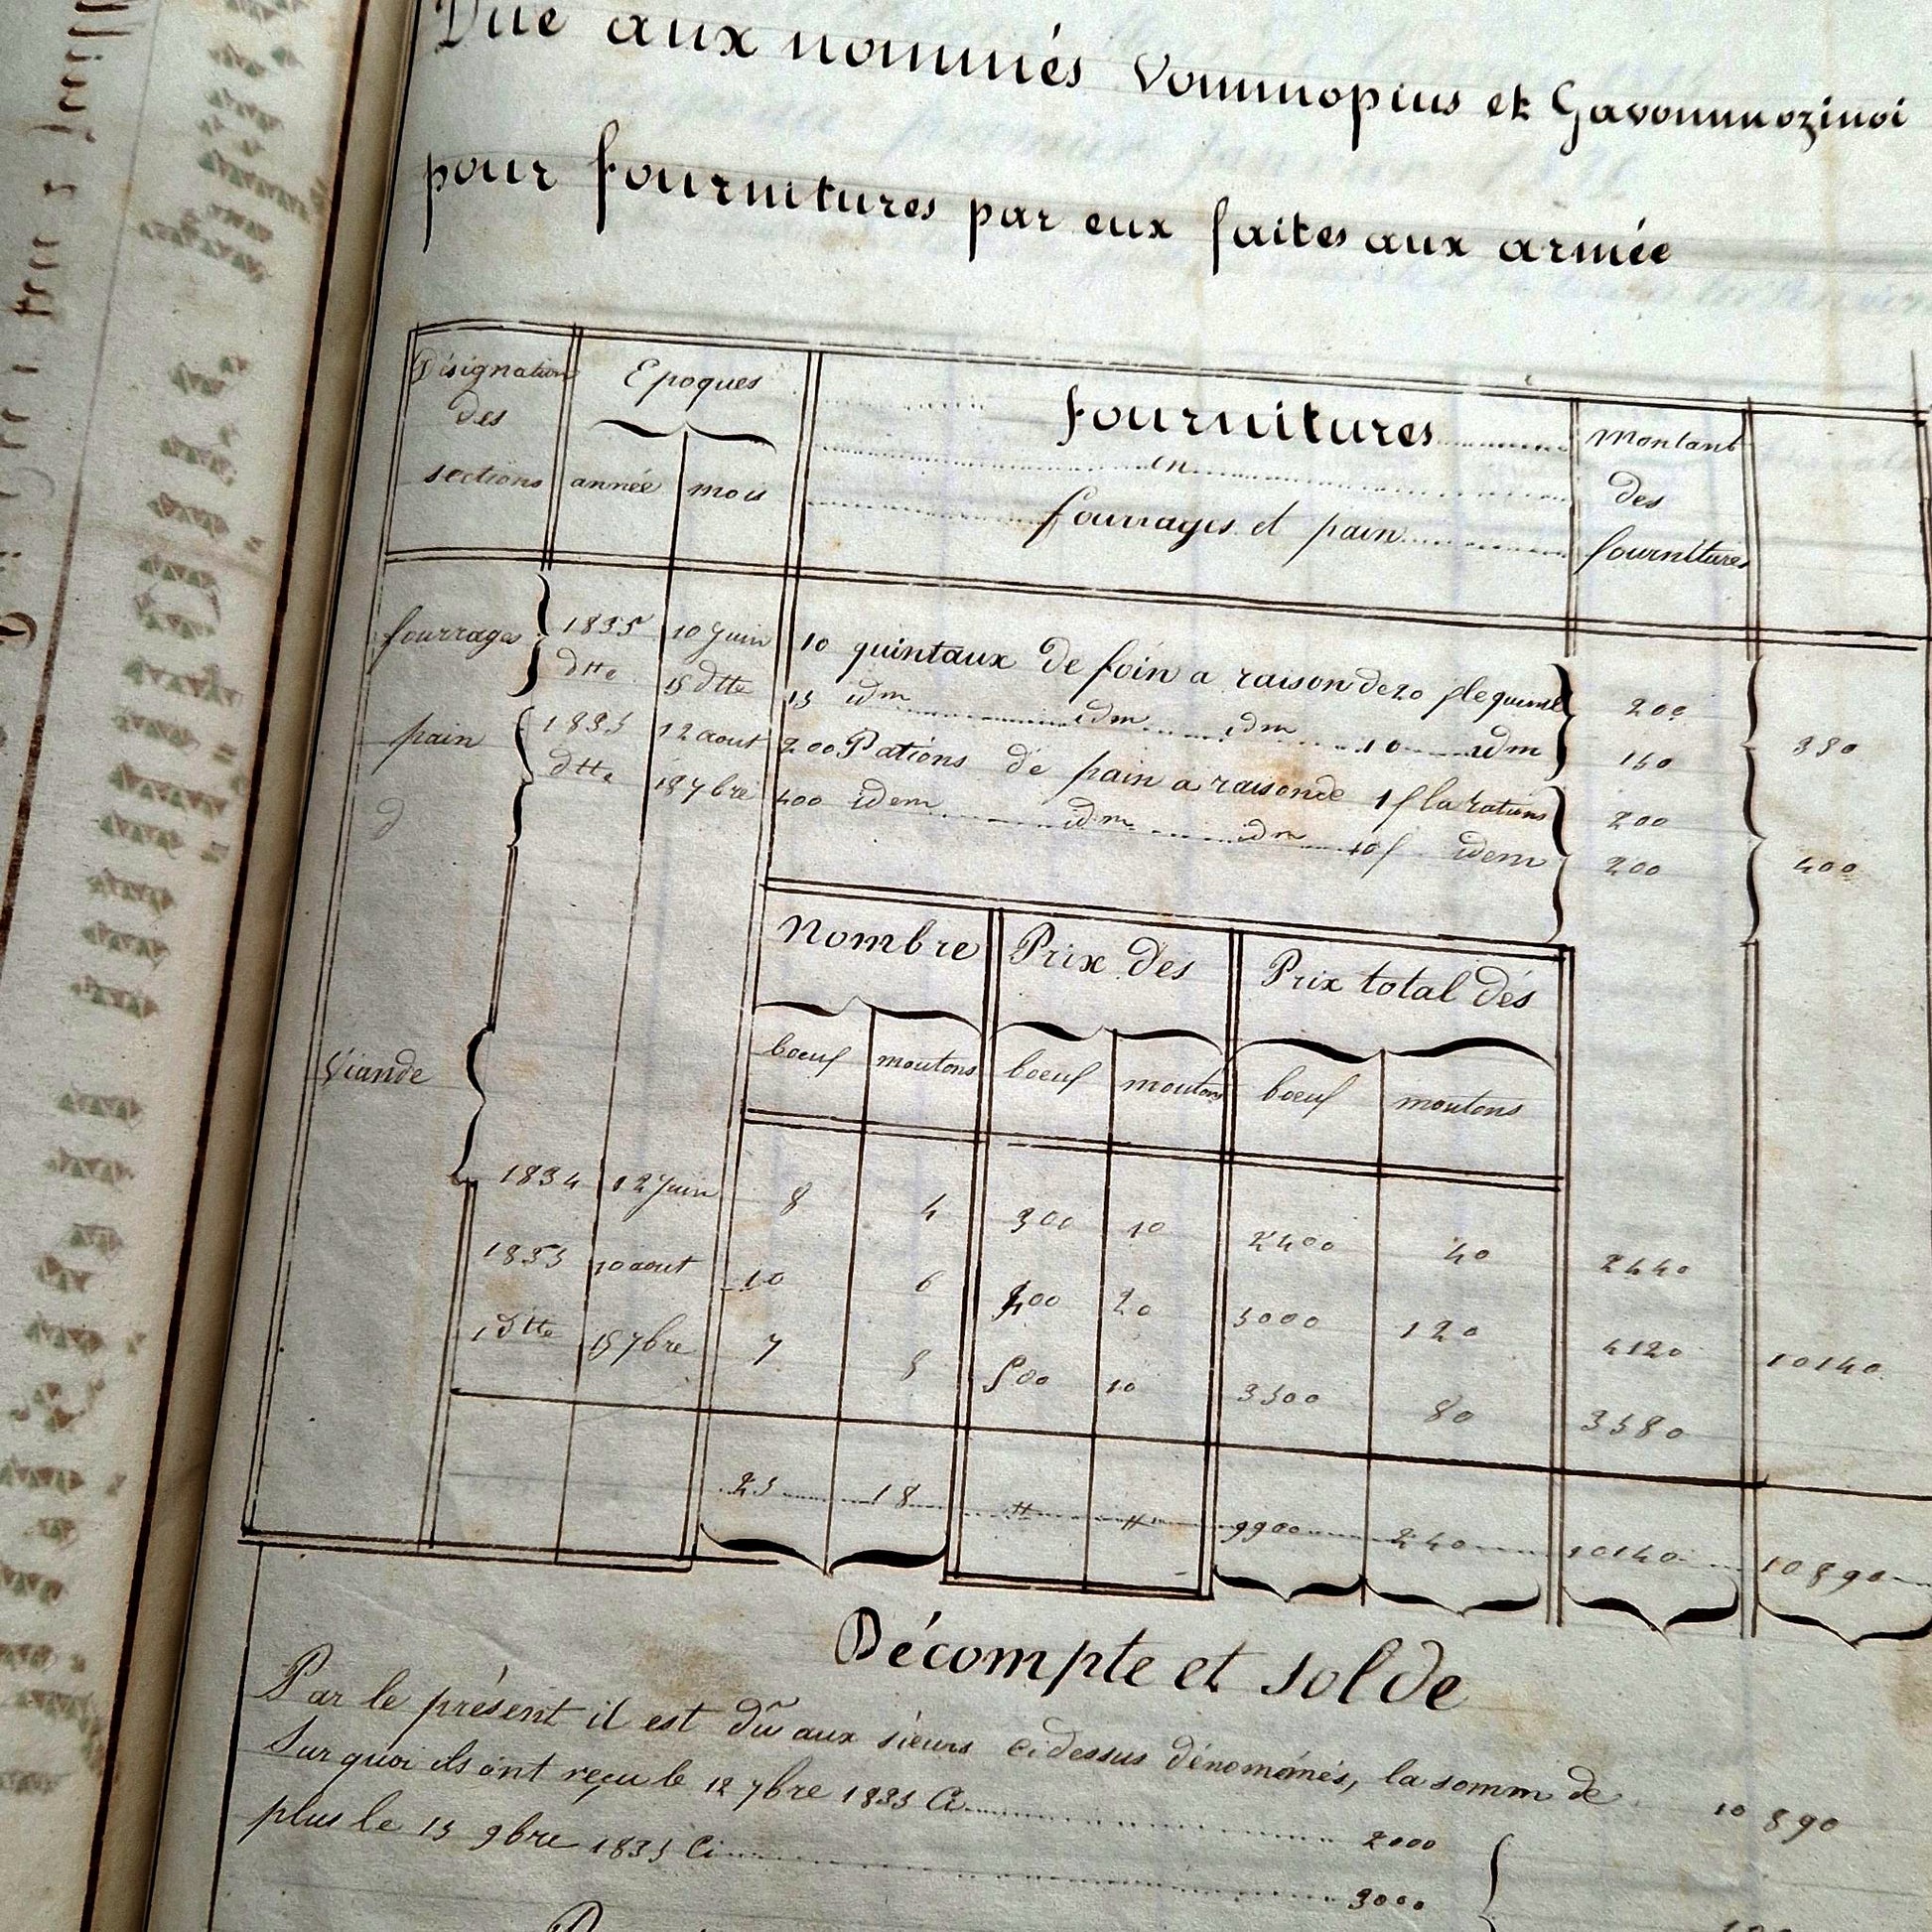 Due aux nommés Vommopius et Gavommozinoi
pour fournitures par eux faites aux armée
Désignation des sections
Epoques
année mois
fournitures
en
fourrages et pain
Montant des fournitures
fourrages 1835 10 Juin 10 quintaux de foin a raison de 20 f le quintal 200
dtte 15 dtte 15 idm idm idm 10 idm 150 350
pain 1835 12 aout 200 Rations de pain a raison de 1 f la rations 200
dtte 18 7bre 400 idem idm idm 10 f idem 200 400
Nombre Prix des Prix total dés
boeuf moutons boeuf moutons boeuf moutons
Viande
1834 12 Juin 8 4 300 10 2400 40 2440
1835 10 aout 10 6 400 20 120 4120 10140
dtte 15 7bre 7 8 500 10 3500 80 3580
25 18 " " 9900 240 10140 10890
Décompte et solde
Par le présent il est dû aux sieurs cidessus dénomónés, la somm de 10890
Sur quoi ils ont reçu le 12 7bre 1835 Ci 2000
plus le 15 9bre 1835 Ci 3000